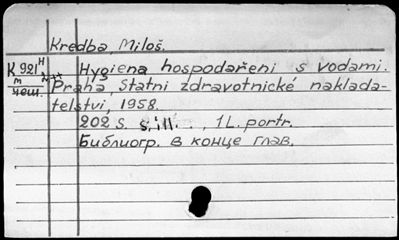 Kredba Miloš.
K 921 Hygiena hospodaření s vodami.
m
чеш. Praha Statni zdravotnické naklada-
telstvi, 1958.
202 s. s ill. , 1 L. portr.
Библиогр. в конце глав.